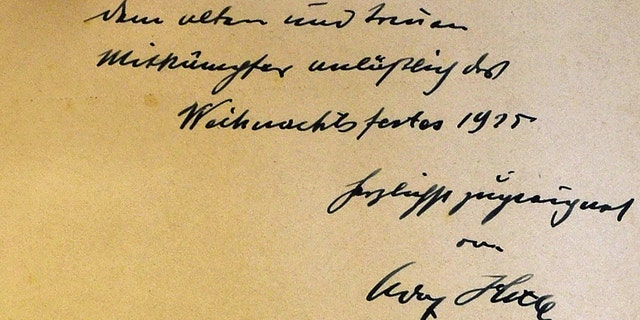 dem alten und treuen
Mitkämpfer anläßlich des
Weihnachtsfestes 1925
herzlichst zugeeignet
von
Adolf Hitler